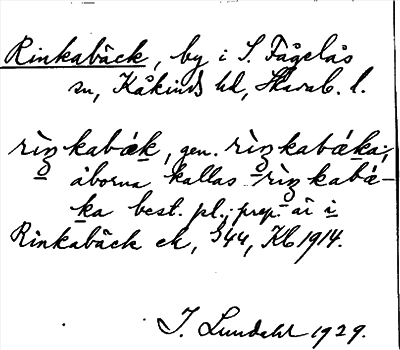 Rinkabäck, by i S. Fågelås
sn, Kåkinds hd, Skarab. l.
rìŋkabák, gen. rìŋkabáka;
åborna kallas rìŋkabá-
ka best. pl.; prep. är i
Rinkabäck ek, §44, Kb 1914.
J. Lundahl 1929.